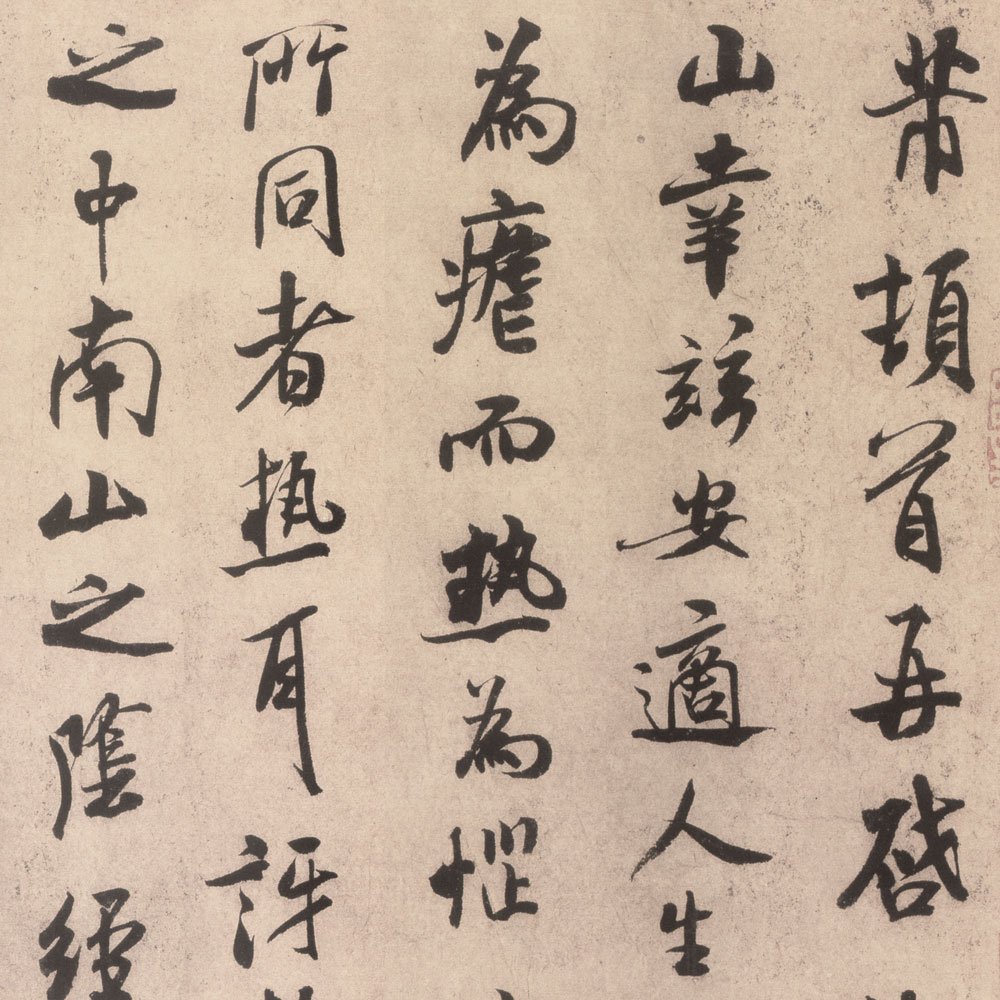 芾頓首再啟
山幸茲安適人生
為瘧而熱為
所同者熱耳訝
之中南山之陰經